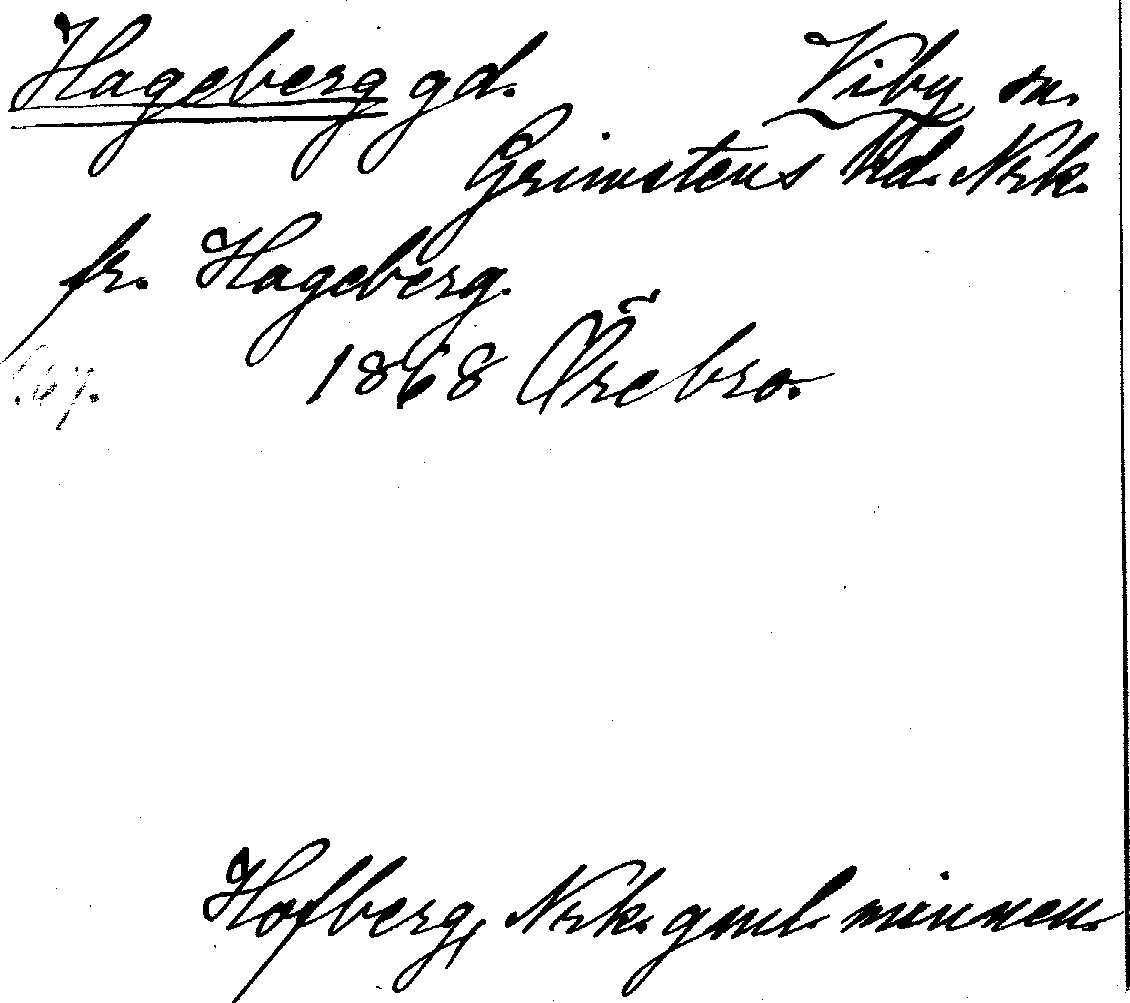 Hageberg gd. Viby sn.
Grimstens hd. Nrk.
fr. Hageberg.
1868 Örebro.
Hofberg, Nrk. gml. minnen.